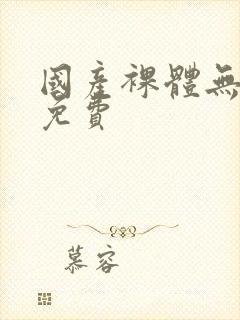 國產裸體無
免費
慕容